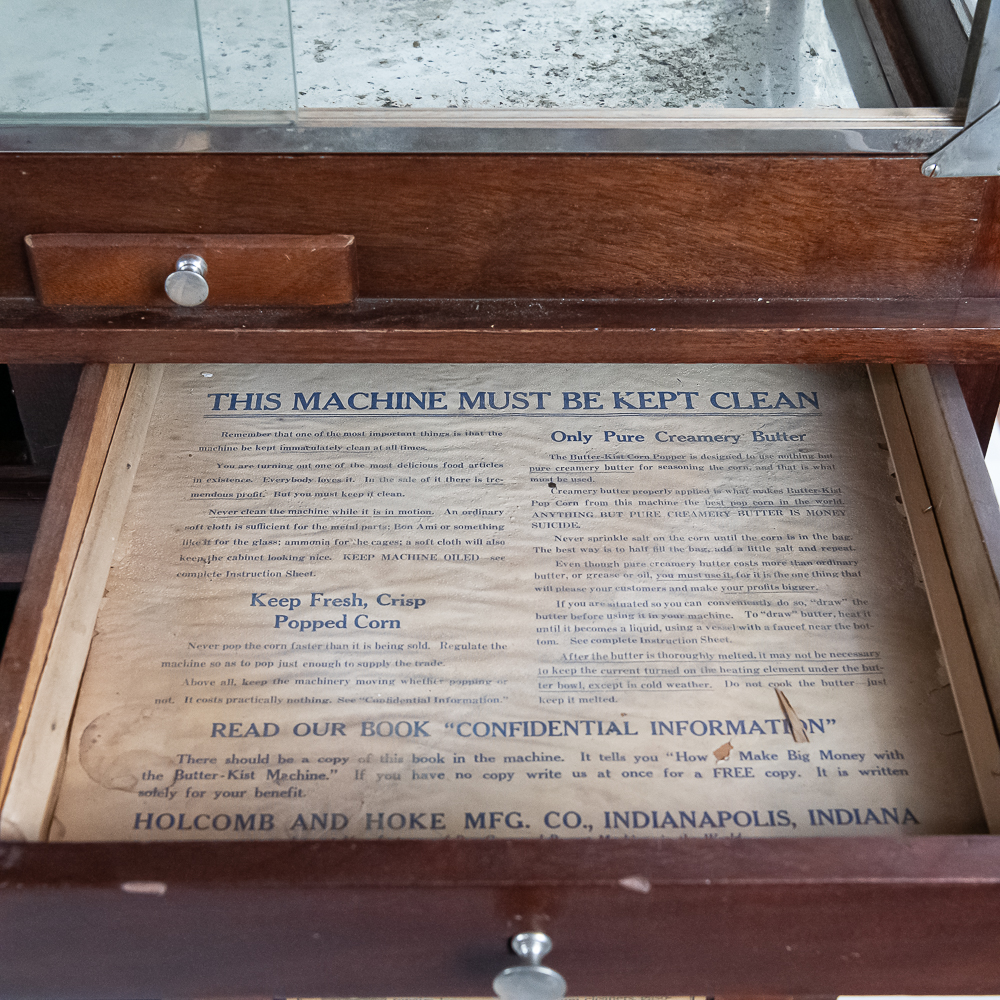 THIS MACHINE MUST BE KEPT CLEAN
Remember that one of the most important things is that the
machine be kept immaculately clean at all times.
You are turning out one of the most delicious food articles
in existence. Everybody loves it. In the sale of it there is tre-
mendous profit. But you must keep it clean.
Never clean the machine while it is in motion. An ordinary
soft cloth is sufficient for the metal parts; Bon Ami or something
like it for the glass; ammonia for the cages; a soft cloth will also
keep the cabinet looking nice. KEEP MACHINE OILED—see
complete Instruction Sheet.
Keep Fresh, Crisp
Popped Corn
Never pop the corn faster than it is being sold. Regulate the
machine so as to pop just enough to supply the trade.
Above all, keep the machinery moving whether popping or
not. It costs practically nothing. See "Confidential Information."
Only Pure Creamery Butter
The Butter-Kist Corn Popper is designed to use nothing but
pure creamery butter for seasoning the corn, and that is what
must be used.
Creamery butter properly applied is what makes Butter-Kist
Pop Corn from this machine the best pop corn in the world.
ANYTHING BUT PURE CREAMERY BUTTER IS MONEY
SUICIDE.
Never sprinkle salt on the corn until the corn is in the bag.
The best way is to half fill the bag, add a little salt and repeat.
Even though pure creamery butter costs more than ordinary
butter, or grease or oil, you must use it, for it is the one thing that
will please your customers and make your profits bigger.
If you are situated so you can conveniently do so, "draw" the
butter before using it in your machine. To "draw" butter, heat it
until it becomes a liquid, using a vessel with a faucet near the bot-
tom. See complete Instruction Sheet.
After the butter is thoroughly melted, it may not be necessary
to keep the current turned on the heating element under the but-
ter bowl, except in cold weather. Do not cook the butter—just
keep it melted.
READ OUR BOOK "CONFIDENTIAL INFORMATION"
There should be a copy of this book in the machine. It tells you "How Make Big Money with
the Butter-Kist Machine." If you have no copy write us at once for a FREE copy. It is written
solely for your benefit.
HOLCOMB AND HOKE MFG. CO., INDIANAPOLIS, INDIANA